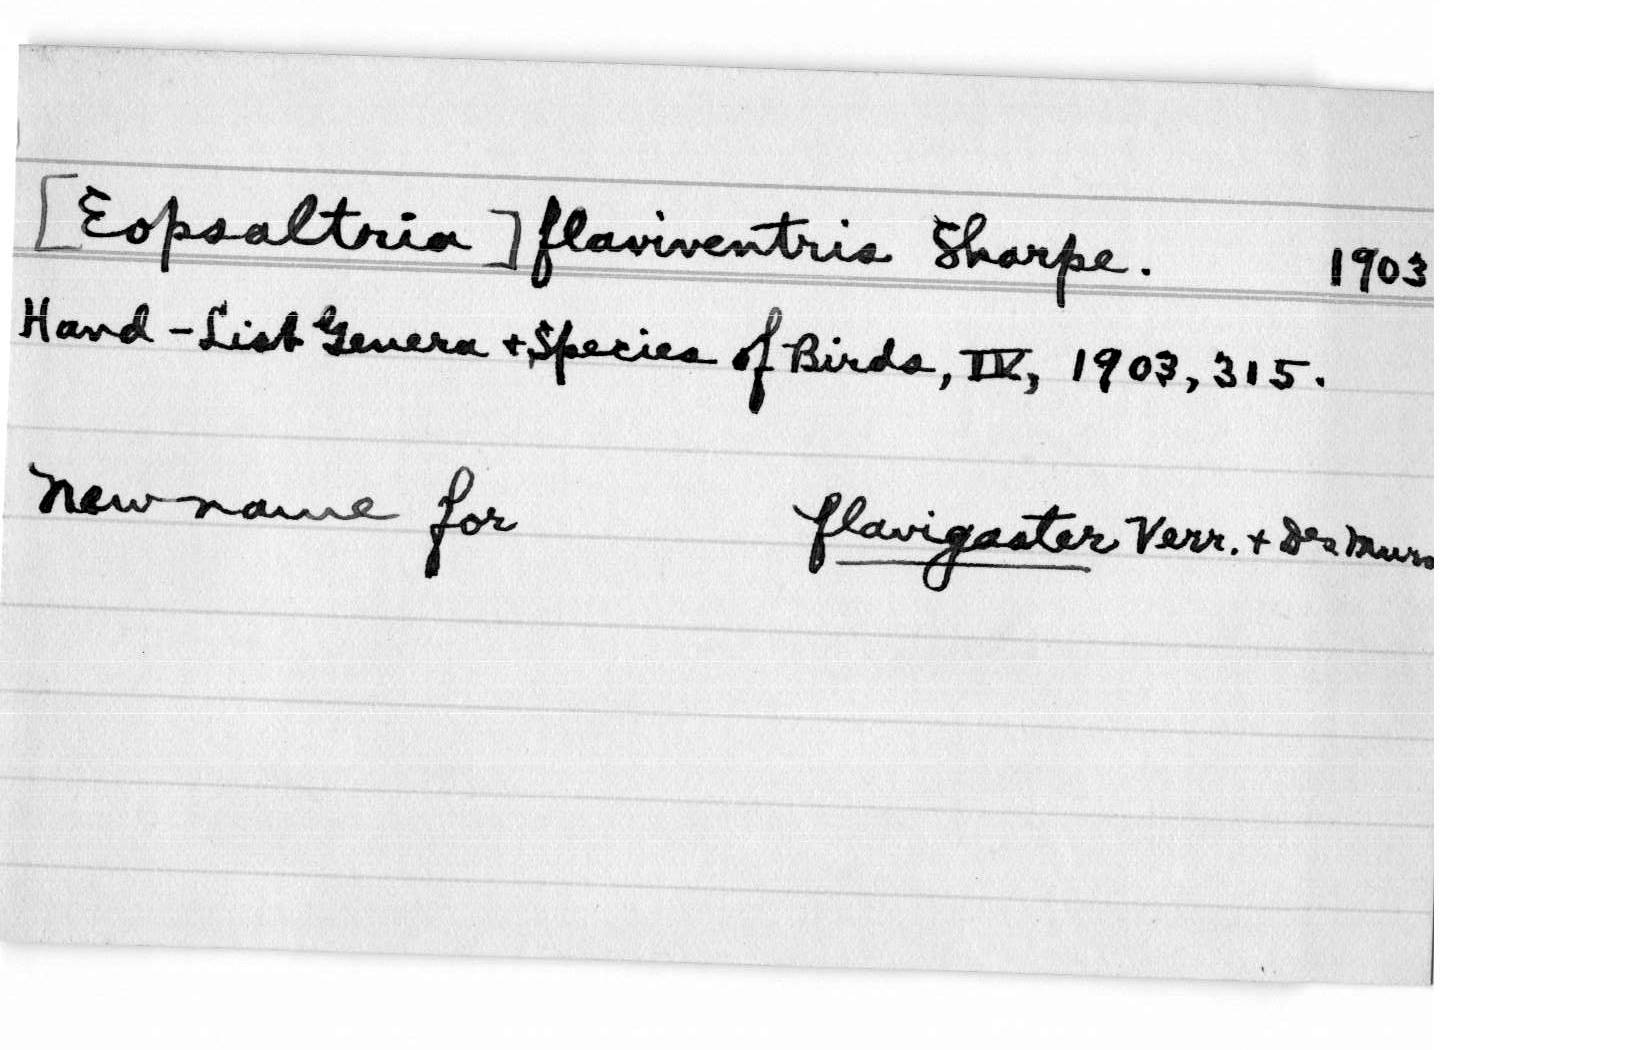 [Eopsaltria] flaviventris Sharpe. 1903
Hand-List Genera + Species of Birds, IV, 1903, 315.
New name for flavigaster Verr. + Des Murs